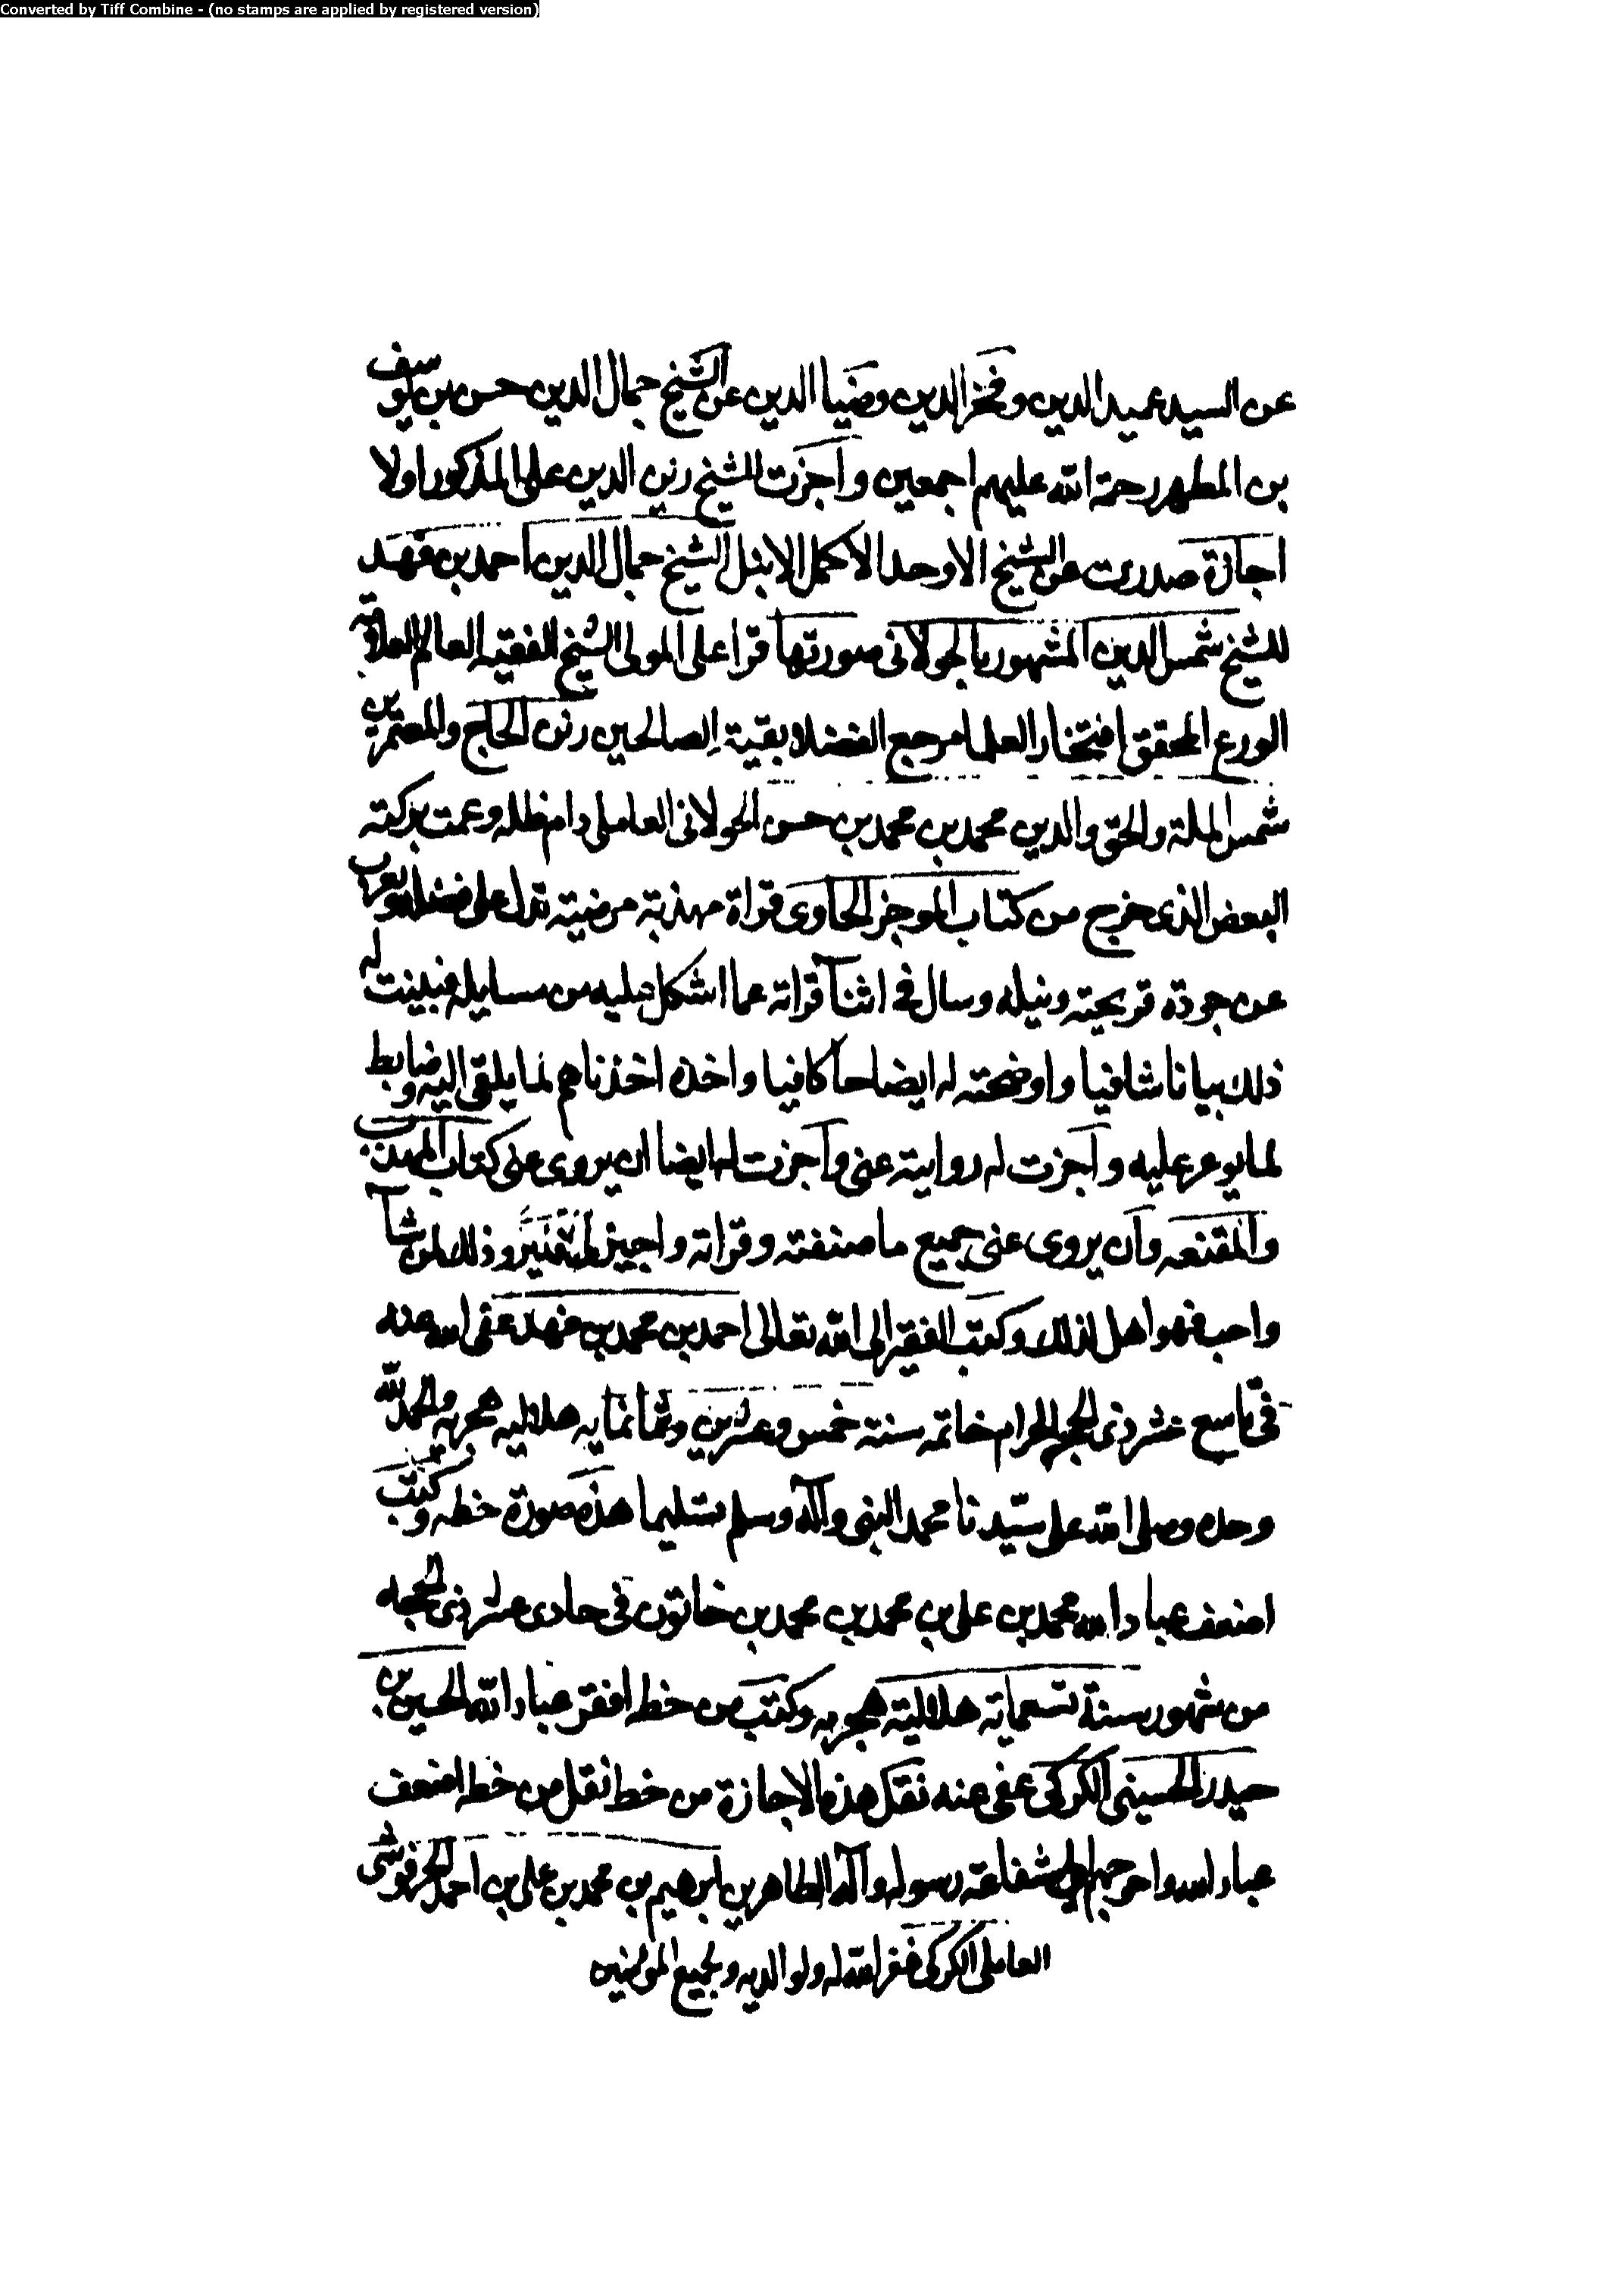 Converted by Tiff Combine - (no stamps are applied by registered version)
عن السيد عميد الدين وفخر الدين وضيا الدين عن الشيخ جمال الدين حسن بن يوسف
بن المطهر رحمة الله عليهم اجمعين واجزت للشيخ زين الدين على المذكور اولا
اجازة صدرت عن الشيخ الاوحد الاكمل الانبل الشيخ جمال الدين احمد بن فهد
للشيخ شمس الدين المشهور بالجولانى صورتها قرا على المولى الشيخ الفقيه العالم العلامة
الورع المحقق افتخار العلما مرجع الفضلا بقية الصالحين زين الحاج والمعتمرين
شمس الملة والحق والدين محمد بن محمد بن حسن الجولانى العاملى دام ظله وعمت بركته
البعض الذى خرج من كتاب الموجز الحاوى قراة مهذبة مرضية تدل على فضله ويعرب
عن جودة قريحته ونبله وسال فى اثنآ قراته عما اشكل عليه من مسايله فبينت له
ذلك بيانا شافيا واوضحته له ايضاحا كافيا واخذه اخذ فاهم لما يلقى اليه وضابط
لما يوعر عليه وأجزت له روايته عنى وأجزت له ايضا ان يروى عنى كتاب المهذب
والمقنعه وان يروى عنى جميع ما صنفته وقراته واجيز لى وذلك لمن شآ
واحب فهو اهل لذلك وكتب الفقير الى الله تعالى احمد بن محمد بن فهد عفى الله عنه
فى تاسع عشر ذى الحجه الحرام خاتمه سنة خمس وعشرين وثمانمايه هلاليه هجريه والحمد لله
وحده وصلى الله على سيدنا محمد النبى وآله وسلم تسليما هذه صورة خطه وكتب
اضعف عباد الله محمد بن على بن محمد بن محمد بن خاتون فى حادى عشر ذى الحجه
من شهور سنة تسعمائة هلالية هجريه وكتب من خطه افقر عباد الله الحسين بن
حيدر الحسينى الكركى عفى عنه نقل هذه الاجازة من خط نقل من خطه اضعف
عباد الله واحوجهم الى شفاعة رسوله وآله الطاهرين ابرهيم بن محمد بن على بن احمد الحرفوشى
العاملى الكركى غفر الله له ولوالديه ولجميع المؤمنين